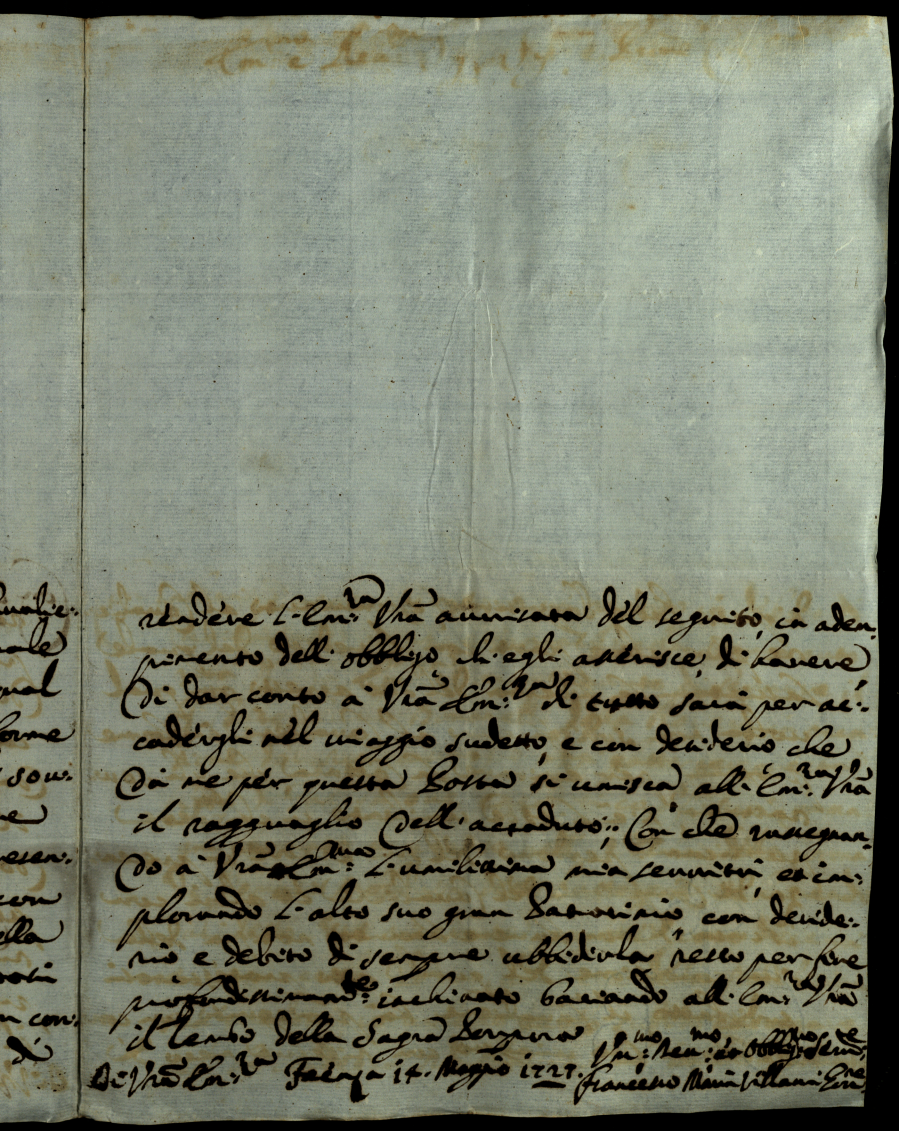 rendere l'Em:za Vra auuisata del seguito, in adem,
pimento dell'obbligo ch'egli asserisce di hauere
di dar conto à Vra Em:za di tutto sarà per ac:
cadérgli nel uiaggio sudetto, e con desiderio che
da me per questa Posta si unisca all'Em:za Vra
il ragguaglio dell'accaduto; Con che rassegnan,
do à Vra Em:za l'umilissima mia seruitù, et im:
plorando l'alto suo gran Patrocinio con deside:
rio e debito di sempre ubbidirla resto per fine
profondissimamte: inchinato baciando all'Em:za Vra
il lembo della Sagra Porpora
Di Vra Em:za Faenza 14. Maggio 1727.
Um:mo Deu:mo et Obblig:mo Serure
Francesco Maria Villani
unilie:
nale
qual
forme
sou:
ne
esen:
con
ella
n con:
di